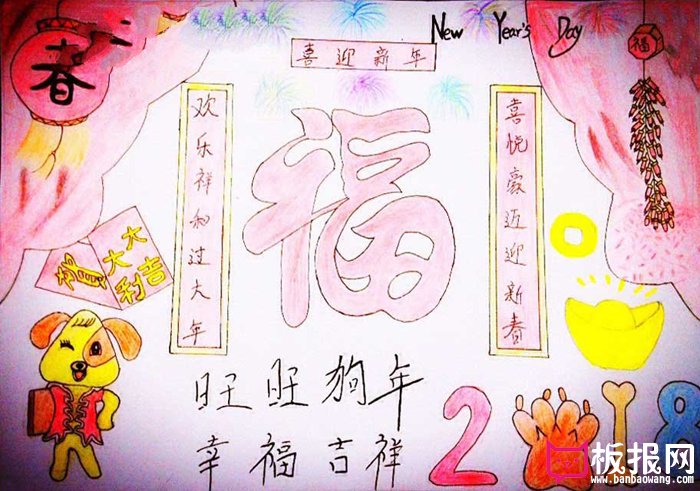 New Year's Day
春
喜迎新年
福
欢乐祥和过大年
福
喜悦豪迈迎新春
大吉
大利
旺旺狗年
幸福吉祥
2018
板报网
www.banbaowang.com